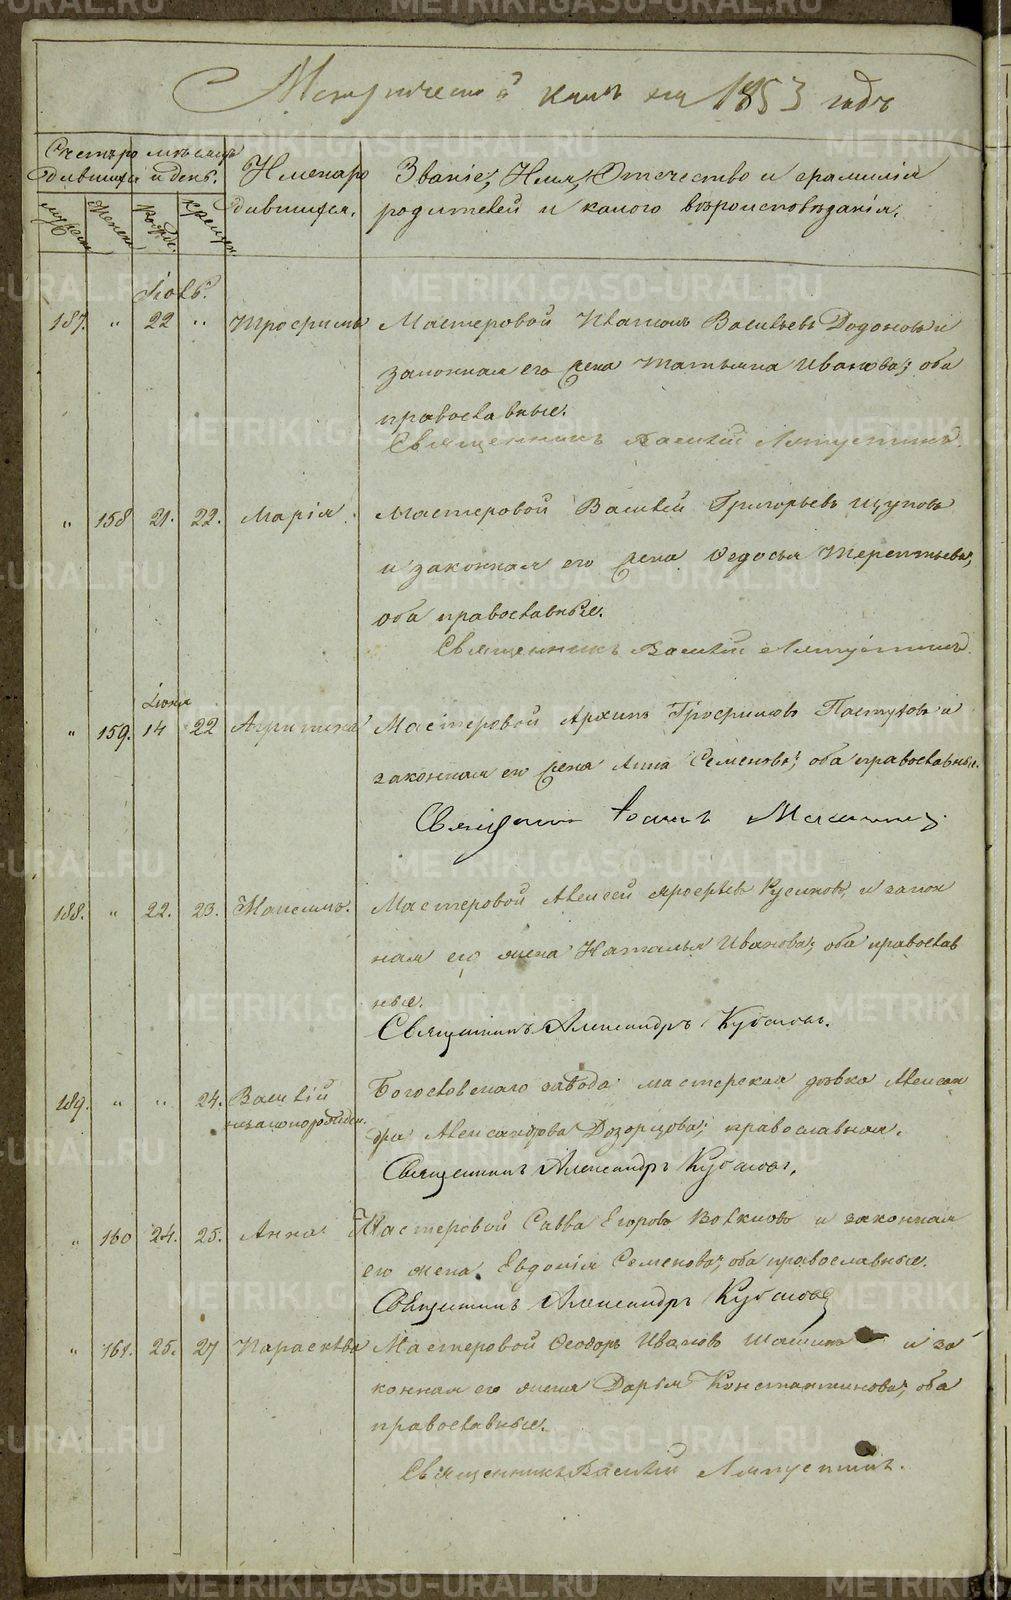 Метрической книги на 1853 годъ
Счетъ ро мѣсяцъ
дившихся и день.
Имена ро
дившихся.
Званіе, Имя, Отчество и фамилія
родителей и какого вѣроисповѣданія.
мужеск женск рожд. крещен.
187. " 22 " Трофимъ Мастеровой Васильевъ Додоновъ и
законная его жена Татьяна Иванова; оба
православные.
Священникъ Василій Ляпустинъ.
" 158 21. 22. Марія. Мастеровой Василей Григорьевъ Щуповъ
и законная его жена Ѳедосья Терентьева,
оба православные.
Священникъ Василій Ляпустинъ.
Іюня
" 159. 14 22 Агрипина Мастеровой Архипъ Трофимовъ Пастуховъ и
законная ею жена Анна Семенова; оба православные.
Священникъ Іоаннъ
188. " 22. 23. Максимъ. Мастеровой Алексей и закон
ная его жена Наталья Иванова; оба православ
ные.
Священникъ Александръ
189. " " 24. Василій
незаконорожден.
Богословскаго завода мастерская дѣвка Алексан
дра Александрова Дозорцова; православная.
Священникъ Александръ
" 160 24. 25. Анна Мастеровой Савва Егоровъ Волковъ и законная
его жена Евдокія Семенова; оба православные.
Священникъ Александръ
" 161. 25. 27 Параскева Мастеровой Ѳеодоръ Ивановъ и за
конная его жена Дарья Константинова; оба
православные.
Священникъ Василій Ляпустинъ.
METRIKI.GASO-URAL.RU